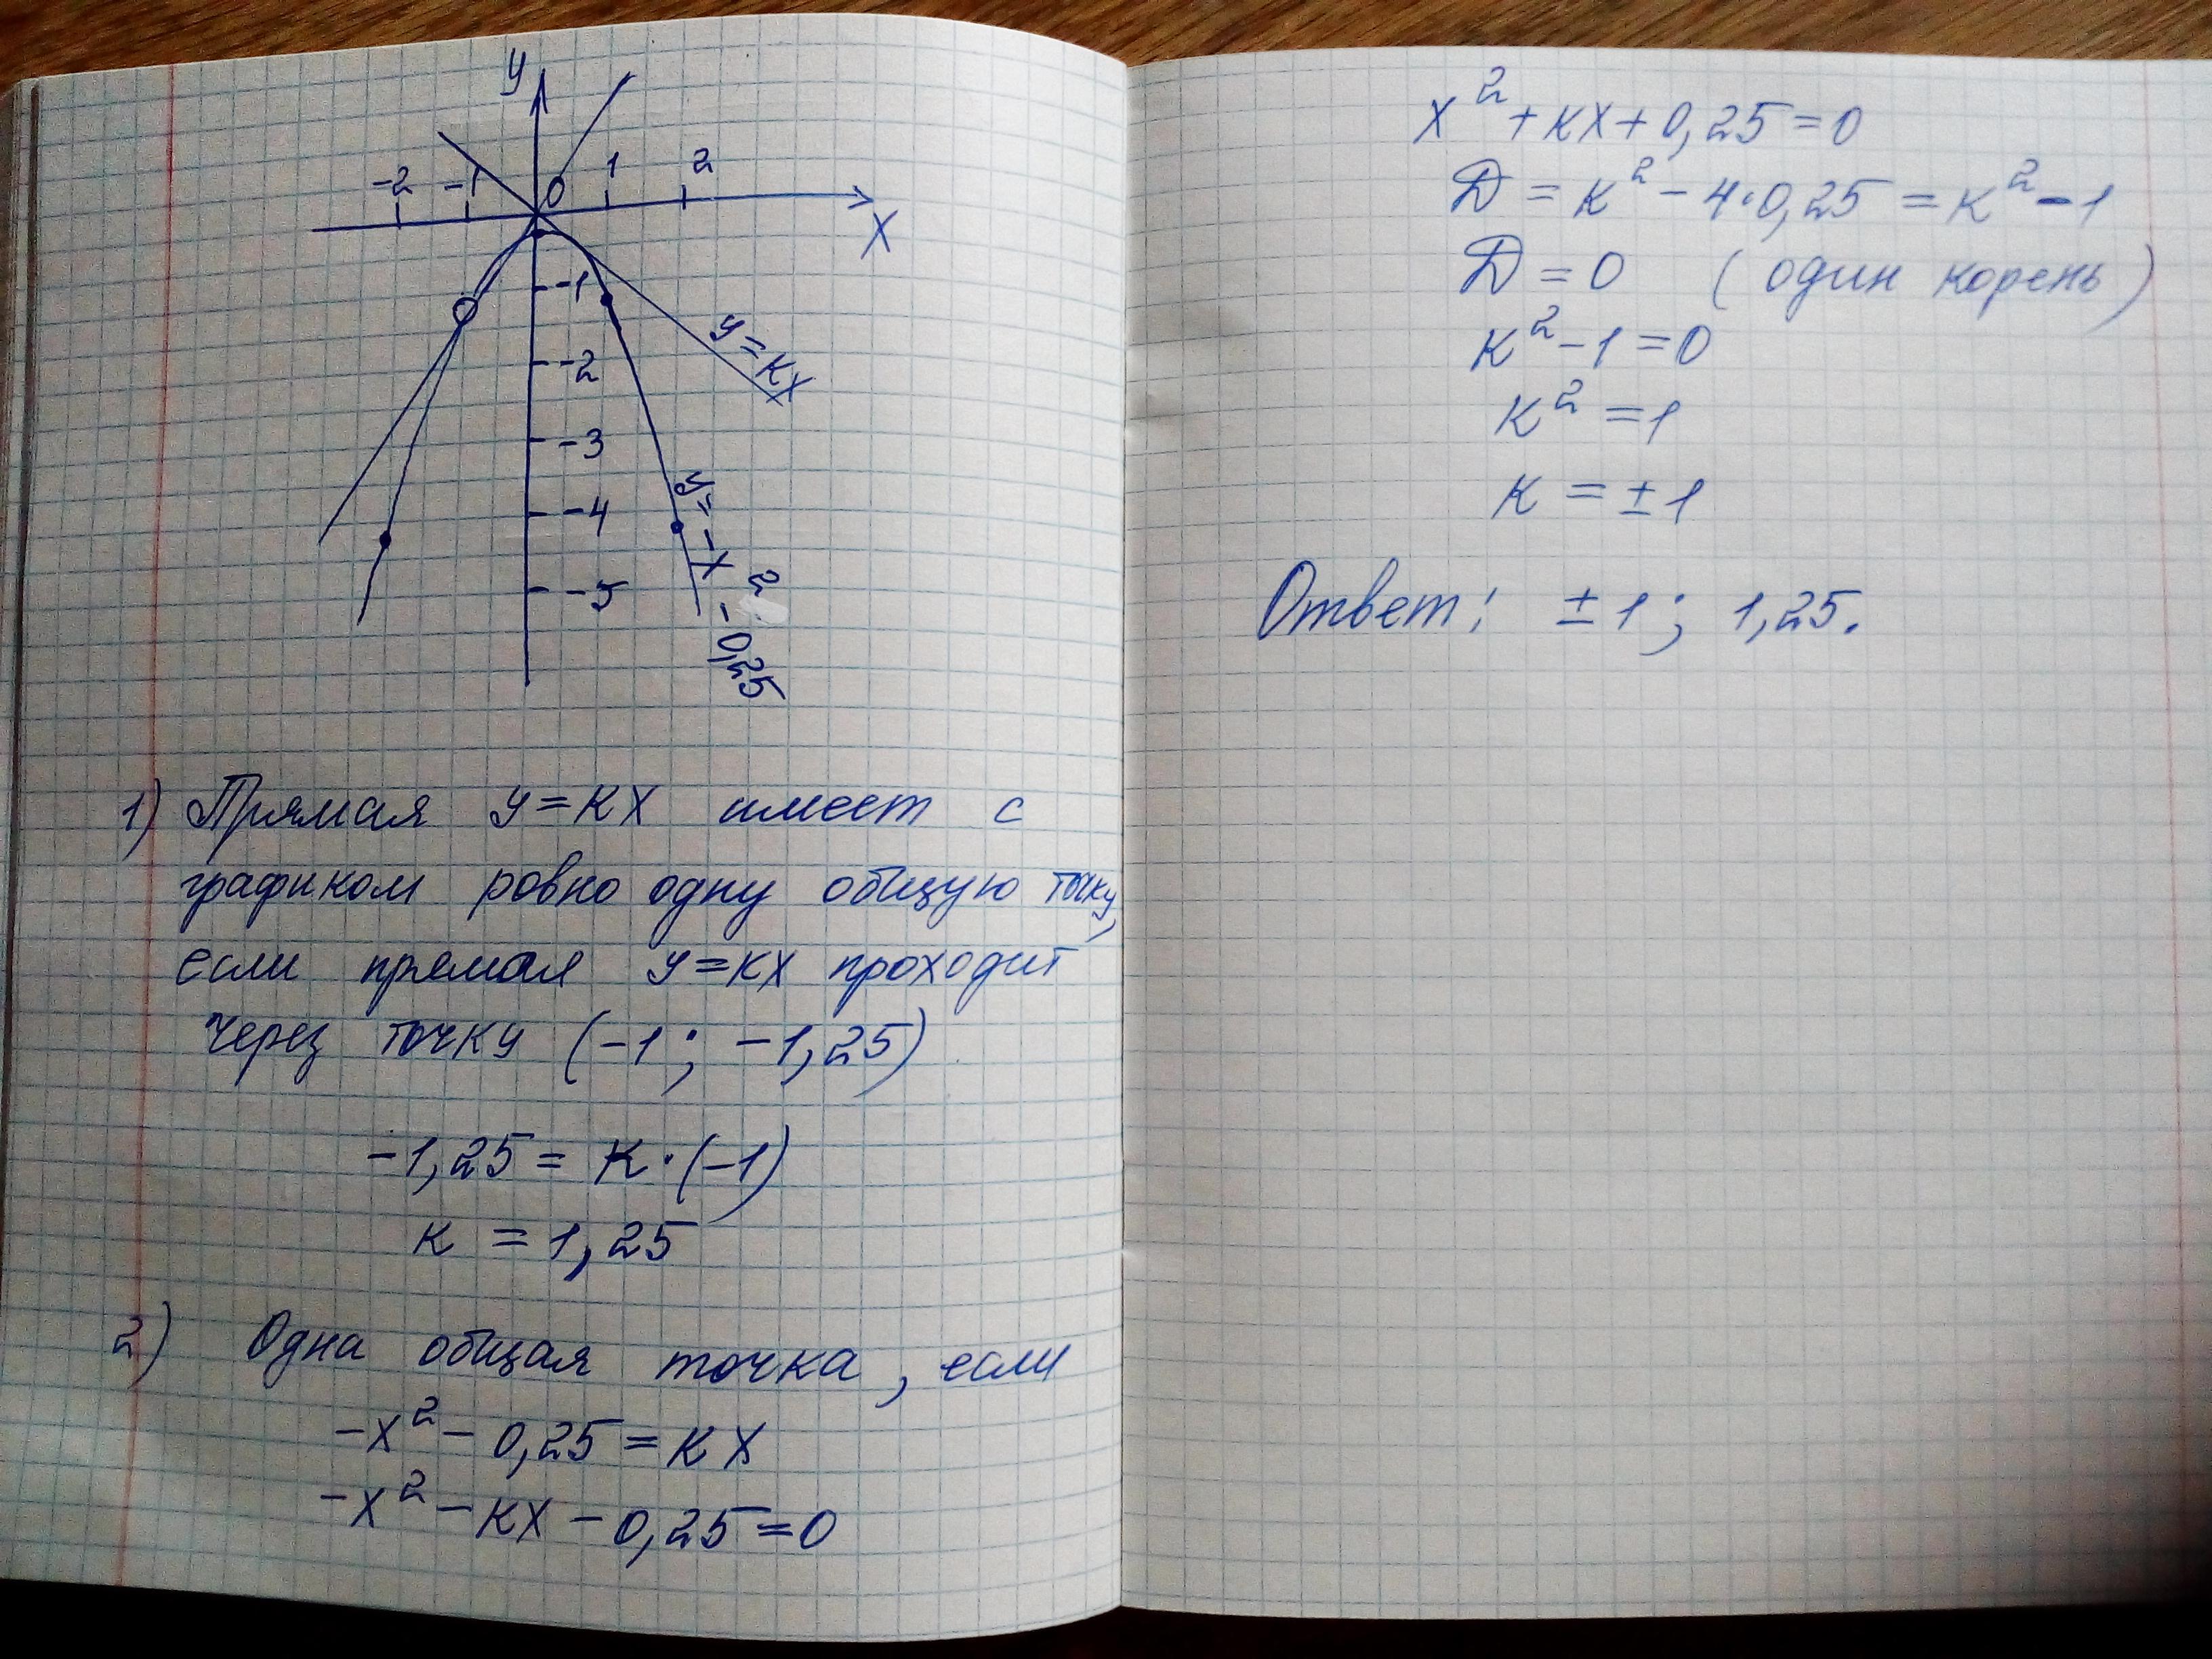 y
-2 -1 0 1 2
x
-1
-2
-3
-4
-5
y=kx
y=-x²-0,25
1) Прямая y=kx имеет с
графиком ровно одну общую точку,
если прямая y=kx проходит
через точку (-1; -1,25)
-1,25 = k·(-1)
k = 1,25
2) Одна общая точка, если
-x² - 0,25 = kx
-x² - kx - 0,25 = 0
x² + kx + 0,25 = 0
D = k² - 4·0,25 = k² - 1
D = 0 (один корень)
k² - 1 = 0
k² = 1
k = ±1
Ответ: ±1; 1,25.